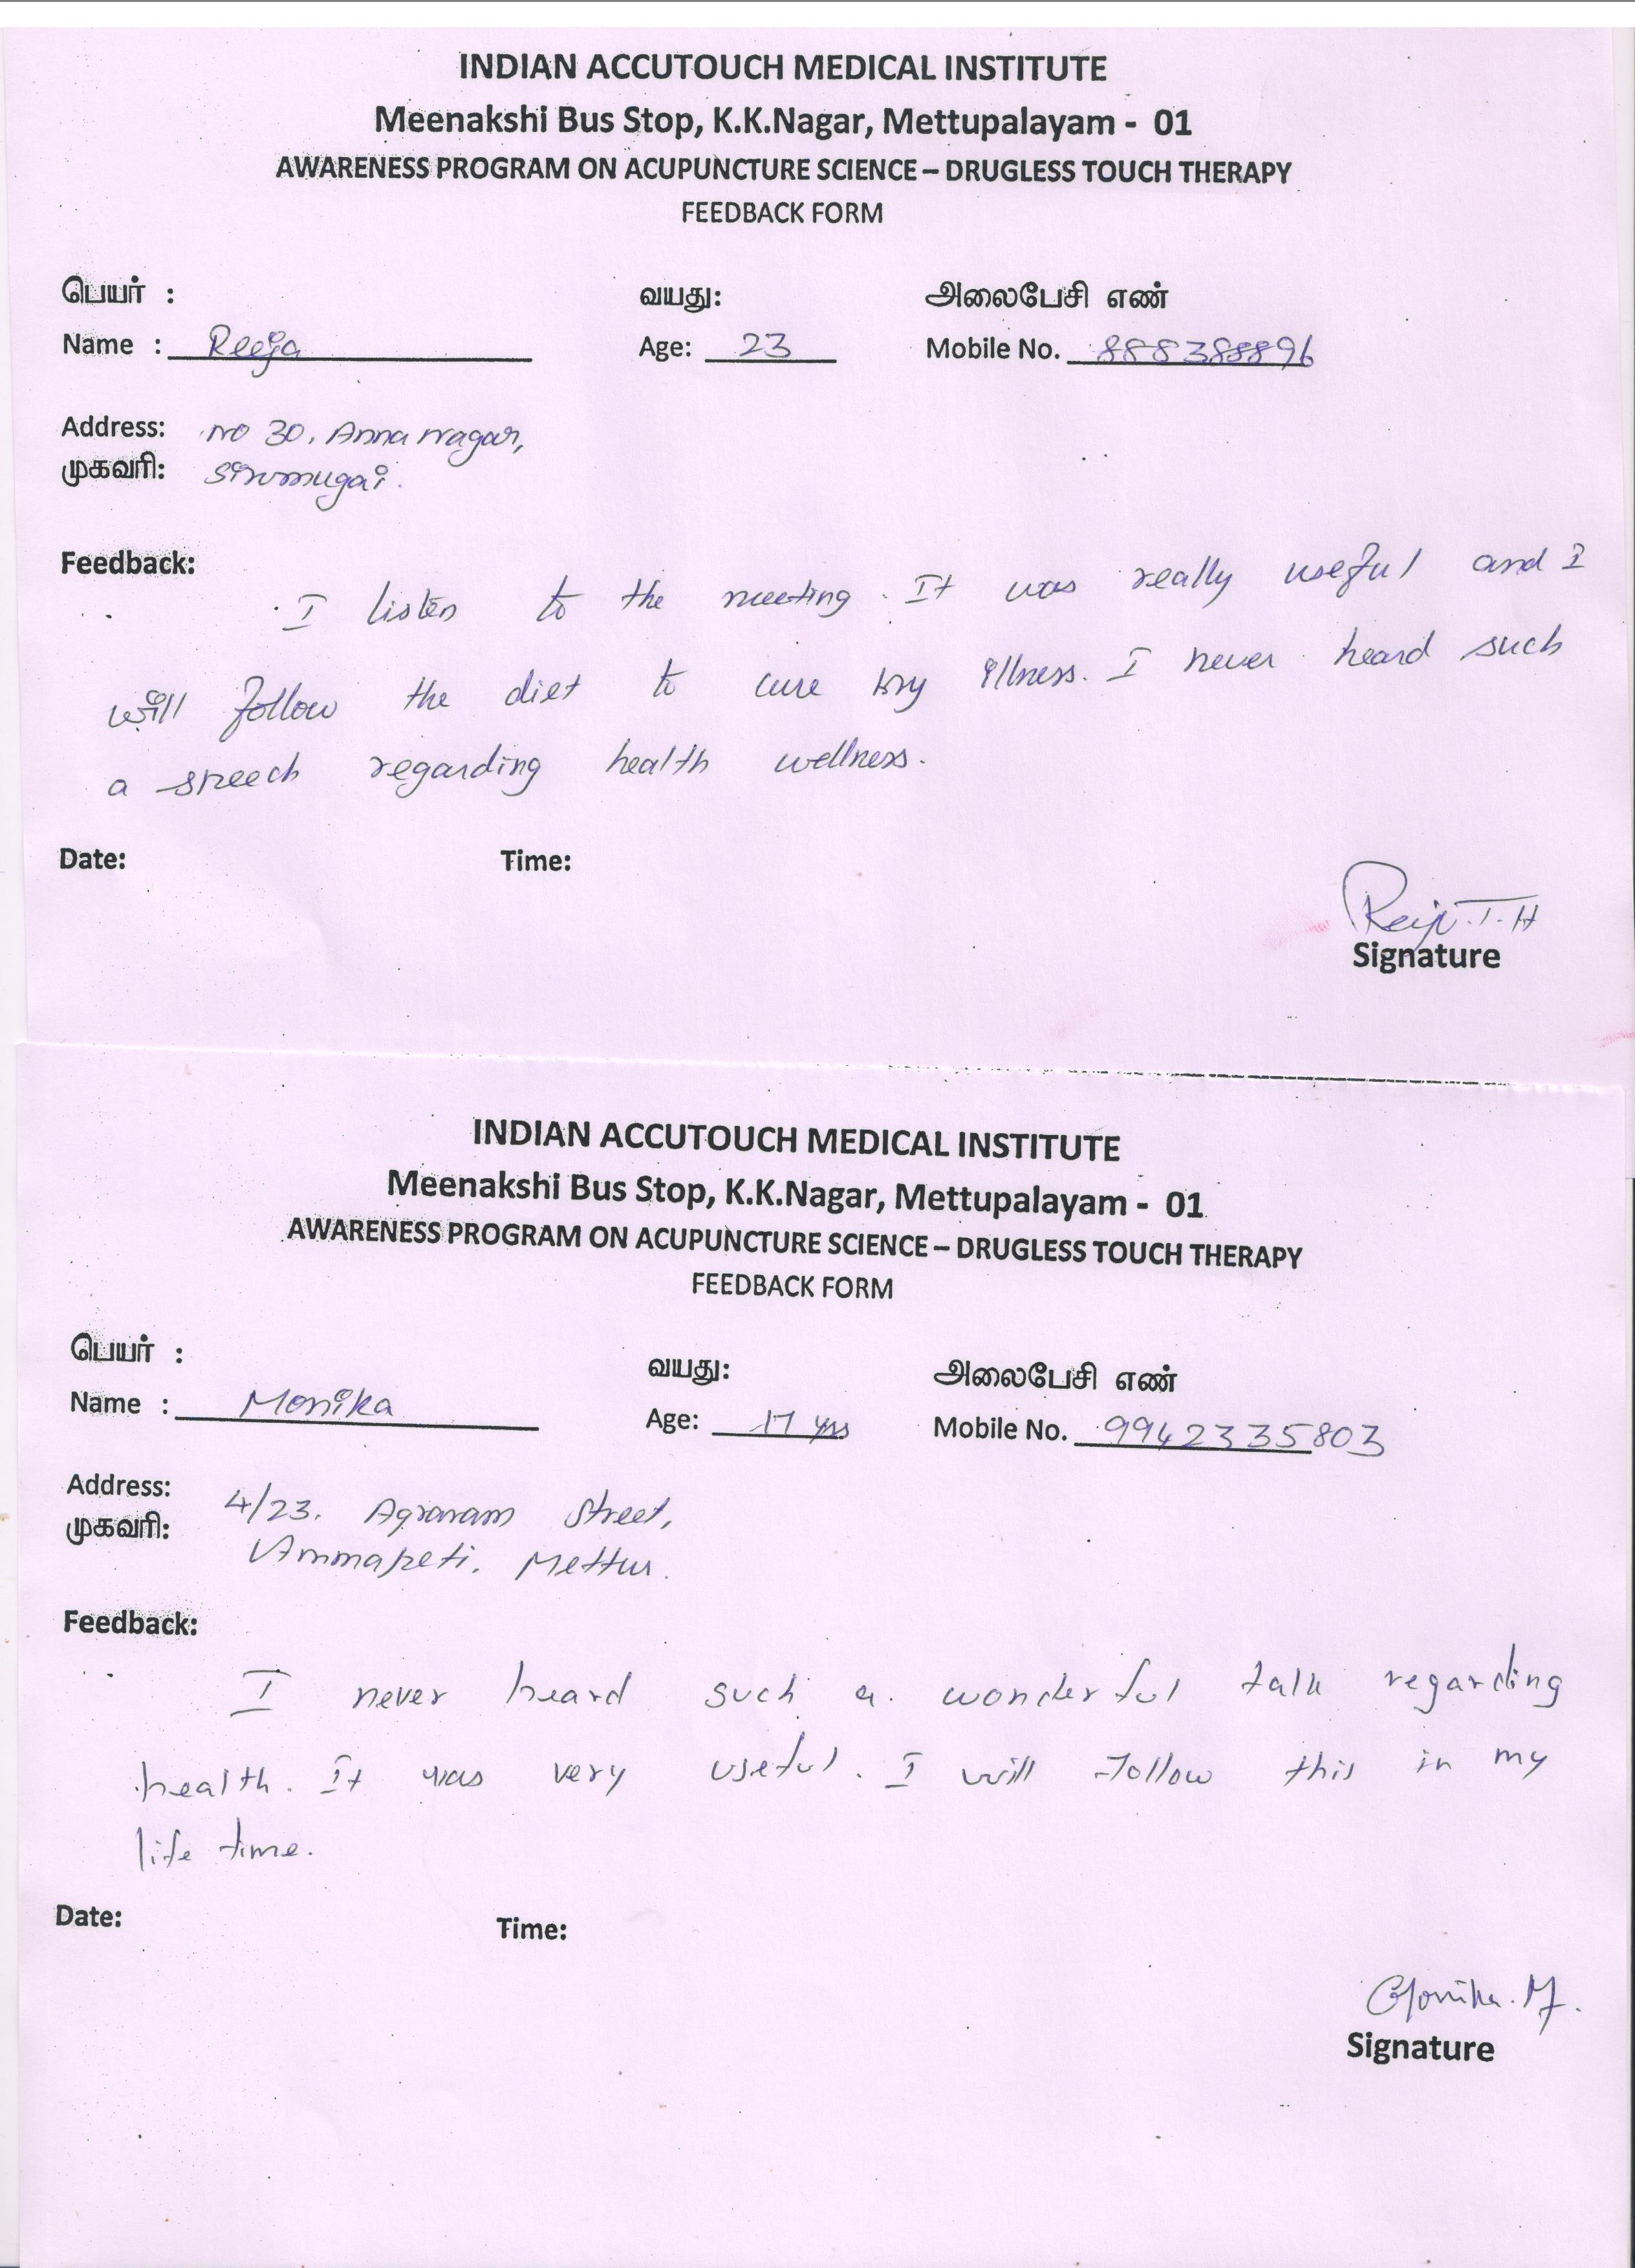 INDIAN ACCUTOUCH MEDICAL INSTITUTE
Meenakshi Bus Stop, K.K.Nagar, Mettupalayam - 01
AWARENESS PROGRAM ON ACUPUNCTURE SCIENCE – DRUGLESS TOUCH THERAPY
FEEDBACK FORM
பெயர் : வயது: அலைபேசி எண்
Name : Reeja Age: 23 Mobile No. 888388896
Address: No 30, Anna nagar,
முகவரி: Sirumugai.
Feedback:
I listen to the meeting. It was really useful and I
will follow the diet to cure my illness. I never heard such
a speech regarding health wellness.
Date: Time:
Signature
INDIAN ACCUTOUCH MEDICAL INSTITUTE
Meenakshi Bus Stop, K.K.Nagar, Mettupalayam - 01
AWARENESS PROGRAM ON ACUPUNCTURE SCIENCE – DRUGLESS TOUCH THERAPY
FEEDBACK FORM
பெயர் : வயது: அலைபேசி எண்
Name : Monika Age: 17 yrs Mobile No. 9942335803
Address: 4/23. Agraram Street,
முகவரி: Ammapeti. Mettur.
Feedback:
I never heard such a wonderful talk regarding
health. It was very useful. I will follow this in my
life time.
Date: Time:
Monika. M.
Signature